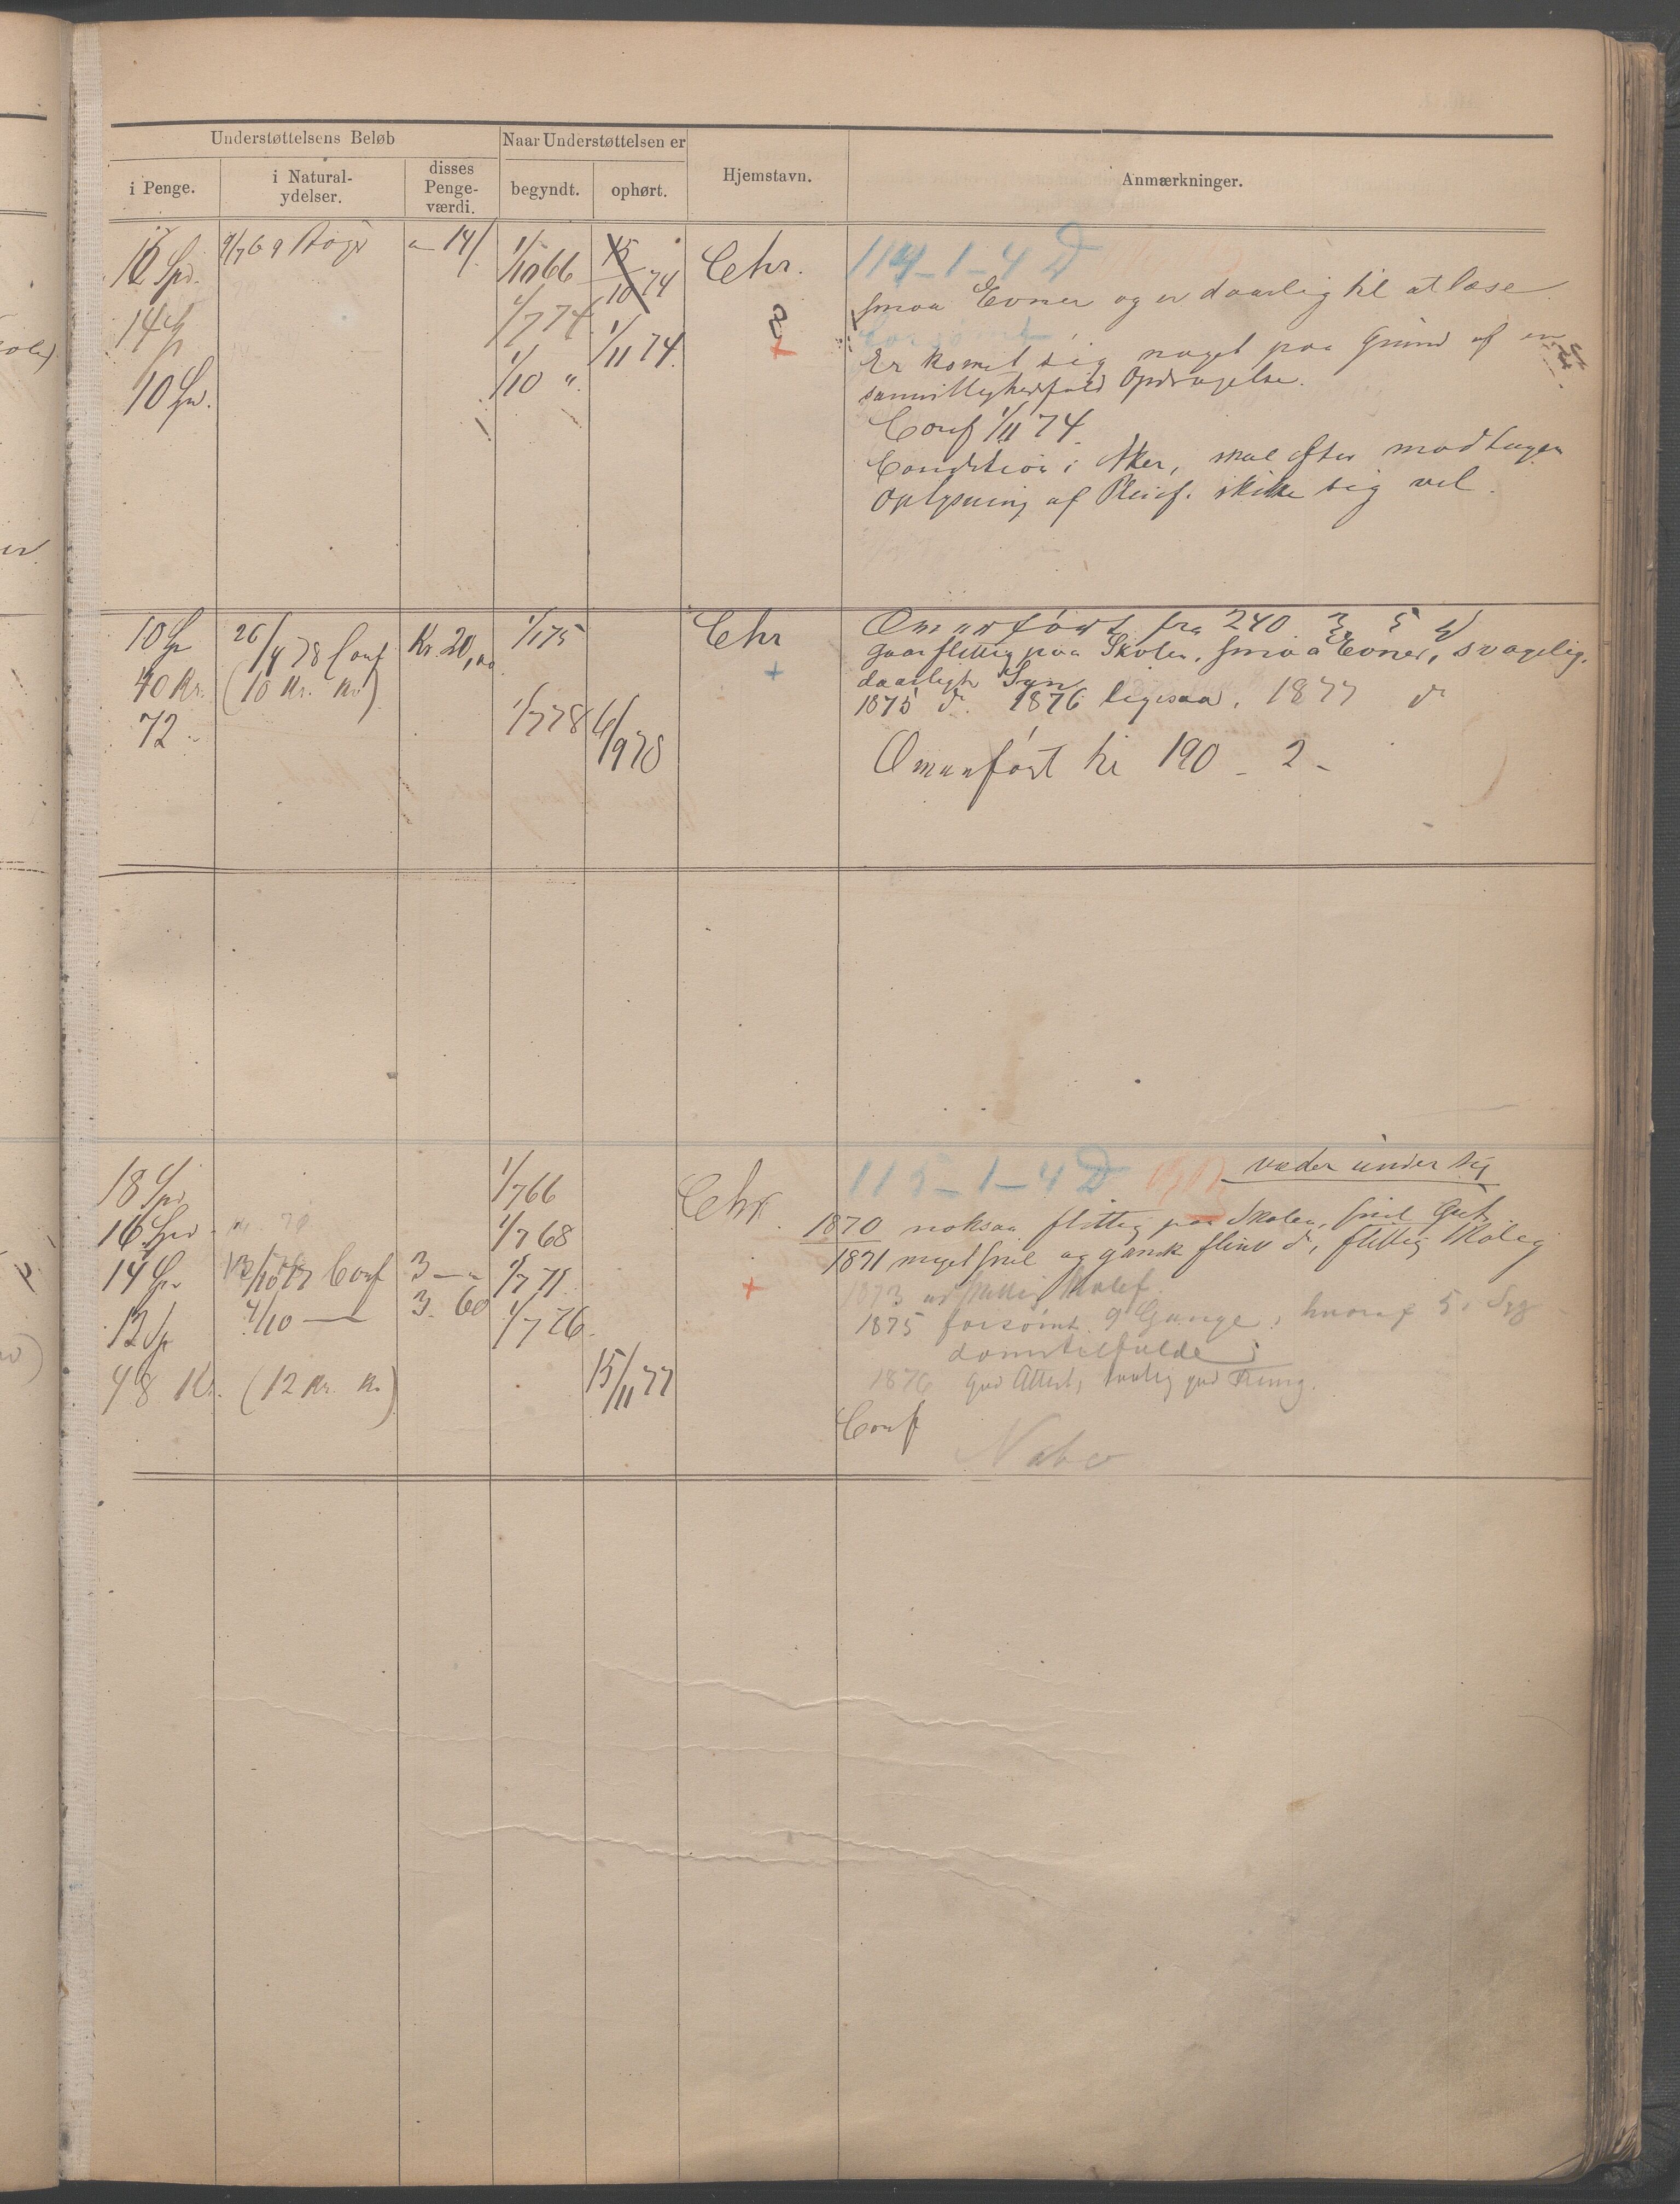 Understøttelsens Beløb
Naar Understøttelsen er
i Penge.
i Natural-
ydelser.
disses
Penge-
værdi.
begyndt.
ophørt.
Hjemstavn.
Anmærkninger.
12 Spd.
14
10
1/10 66
1/7 74
1/10 "
15/10 74
1/11 74
Chr.
114-1-4 D
smaa Evner og er daarlig til at læse
Er komet sig noget paa Grund af en
samvittighedsfuld Opdragelse.
Conf 1/11 74
Condition i Aker, skal efter modtagen
Oplysning af Pleief. skikke sig vel.
10
40 Kr.
72
26/4 78 Conf
(10 Kr. Kv)
Kr. 20,00
1/1 75
1/7 78
6/9 78
Chr
Omanført fra 240 3 5
gaar flittig paa Skolen, smaa Evner, svagelig,
daarligt Syn
1875 d. 1876 ligesaa, 1877 d
Omanført til 190 - 2 -
18 Spd.
16 Spd.
14
12
48 Kr.
13/10 77 Conf
4/10
(12 Kr. Kv)
3
3. 60
1/7 66
1/7 68
1/7 71
1/7 76
15/11 77
Chr.
115-1-4 D
væder under sig
1870 noksaa flittig paa Skolen, snil Gut
1871 meget snil og ganske flink d, flittig Skoleg
1873
1875 forsømt 9 Gange, hvoraf 5 i Syg
domstilfælde
1876 god Attest,
Conf